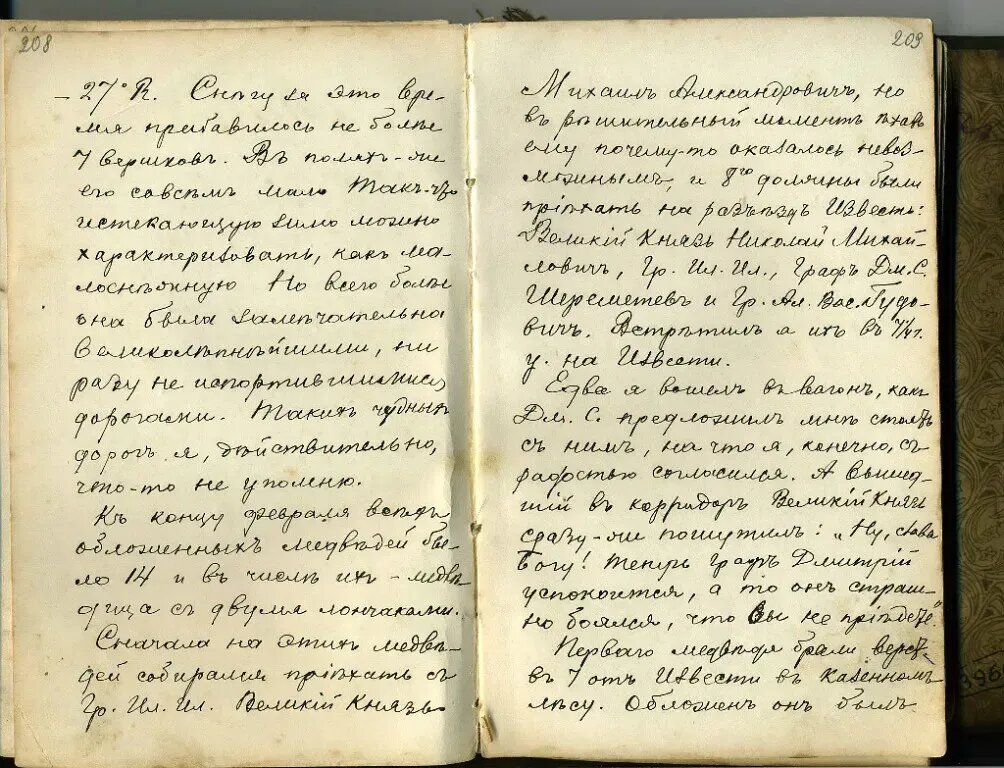 208
– 27° R. Снѣгу за это вре-
мя прибавилось не болѣе
7 вершковъ. Въ поляхъ-же
его совсѣмъ мало Такъ-что
истекающую зиму можно
характеризовать, какъ ма-
лоснѣжную Но всего болѣе
она была замѣчательна
великолѣпнѣйшими, ни
разу не испортившимися
дорогами. Такихъ чудныхъ
дорогъ я, дѣйствительно,
что-то не упомню.
Къ концу февраля всѣхъ
обложенныхъ медвѣдей бы-
ло 14 и въ числѣ ихъ – медвѣ
дица съ двумя лончаками.
Сначала на этихъ медвѣ-
дей собирался пріѣхать съ
Гр. Ил. Ил. Великій Князь
209
Михаилъ Александровичъ, но
въ рѣшительный моментъ ѣхать
ему почему-то оказалось невоз-
можнымъ, и 8го должны были
пріѣхать на разъѣздъ Извѣсть:
Великій Князь Николай Михай-
ловичъ, Гр. Ил. Ил., Графъ Дм. С.
Шереметевъ и Гр. Ал. Вас. Гудо-
вичъ. Встрѣтилъ я ихъ въ
у. на Извести.
Едва я вошелъ въ вагонъ, какъ
Дм. С. предложилъ мнѣ стоять
съ нимъ, на что я, конечно, съ
радостью согласился. А вышед-
шій въ корридоръ Великій Князь
сразу-же пошутилъ: „Ну, слава
Богу! Теперь Графъ Дмитрій
успокоится, а то онъ страш-
но боялся, что Вы не пріѣдете."
Перваго медвѣдя брали верст.
въ 7 отъ Извести въ казенномъ
лѣсу. Обложенъ онъ былъ
396